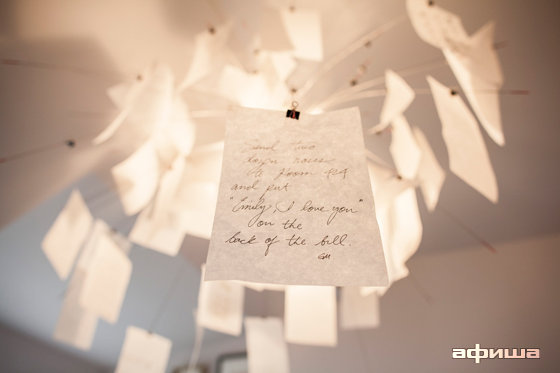 Send two
dozen roses
to Room 424
and put
"Emily, I love you"
on the
back of the bill.
GM
афиша